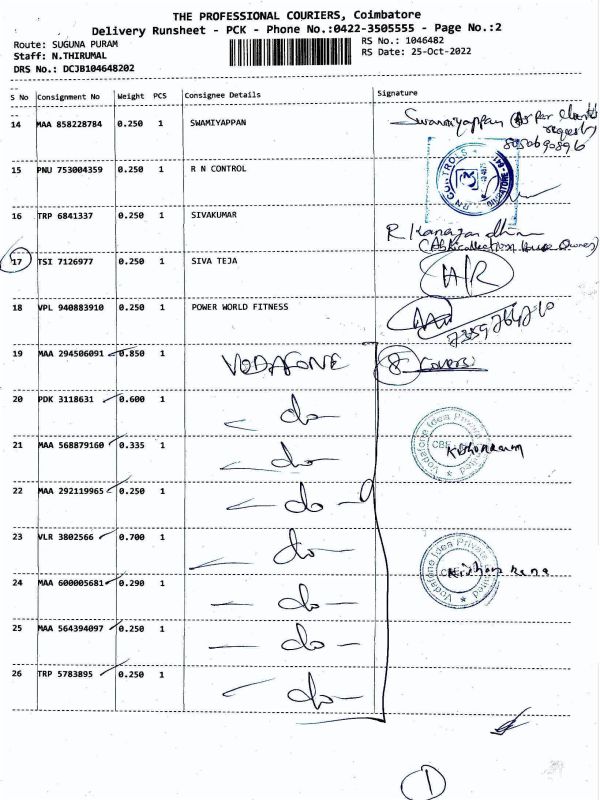 THE PROFESSIONAL COURIERS, Coimbatore
Delivery Runsheet - PCK - Phone No.:0422-3505555 - Page No.:2
Route: SUGUNA PURAM
RS No.: 1046482
Staff: N.THIRUMAL
RS Date: 25-Oct-2022
DRS No.: DCJB104648202
S No Consignment No Weight PCS Consignee Details Signature
14 MAA 858228784 0.250 1 SWAMIYAPPAN Swamiyappan (As per client's
request)
15 PNU 753004359 0.250 1 R N CONTROL
16 TRP 6841337 0.250 1 SIVAKUMAR
17 TSI 7126977 0.250 1 SIVA TEJA
18 VPL 940883910 0.250 1 POWER WORLD FITNESS
19 MAA 294506091 0.850 1 VODAFONE 8 Covers
20 PDK 3118631 0.600 1 — do —
21 MAA 568879160 0.335 1 — do — Vodafone Idea Private Limited
22 MAA 292119965 0.250 1 — do —
23 VLR 3802566 0.700 1 — do —
24 MAA 600005681 0.290 1 — do — Vodafone Idea Private Limited
25 MAA 564394097 0.250 1 — do —
26 TRP 5783895 0.250 1 — do —
1